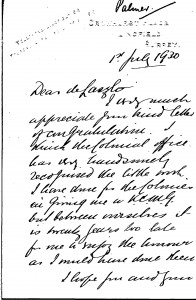 Palmer
LINGFIELD
SURREY.
1st July 1930
Dear de Laszlo
I very much
appreciate your kind letter
of congratulation. I
think the Colonial Office
has very handsomely
recognised the little work
I have done for the Colonies
in giving me a KCMG
but between ourselves it
is twenty years too late
for me to enjoy the honour
as I would have done then
I hope you and your